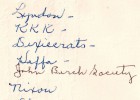 Lyndon -
KKK -
Dixiecrats -
Haffa -
John Burch Society
Nixon